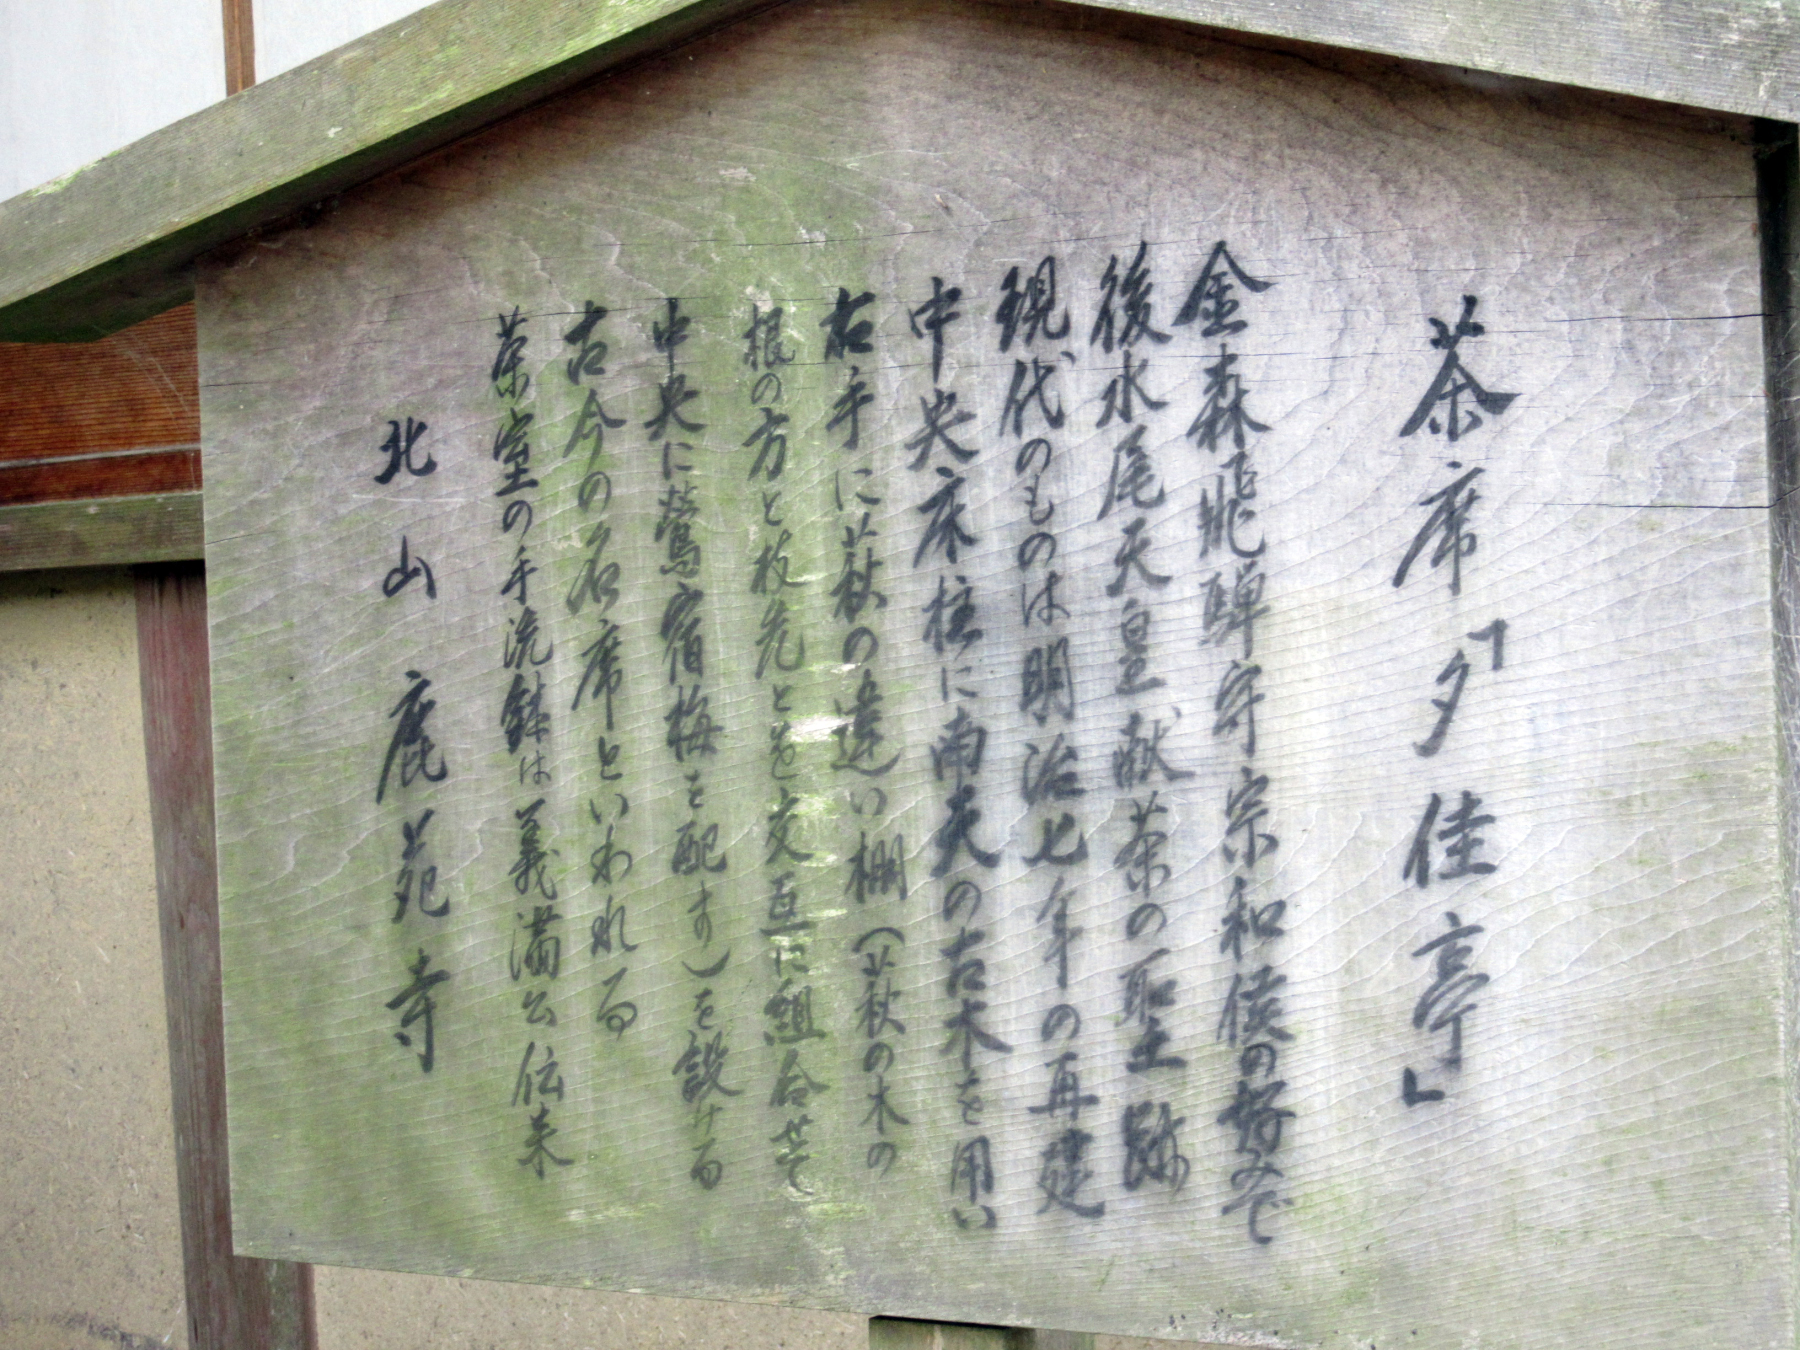 茶席「夕佳亭」
金森飛騨守宗和侯の好みで
後水尾天皇献茶の聖跡
現代のものは明治七年の再建
中央床柱に南天の古木を用い
右手に萩の違い棚（萩の木の
根の方と枝先とを交互に組合せて
中央に鶯宿梅を配す）を設ける
古今の名席といわれる
茶室の手洗鉢は義満公伝来
北山鹿苑寺